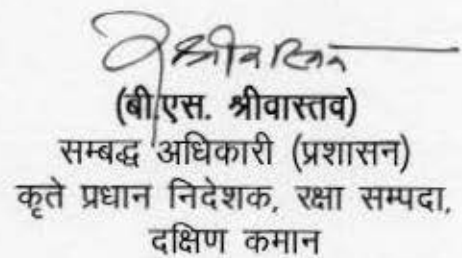 (बी.एस. श्रीवास्तव)
सम्बद्ध अधिकारी (प्रशासन)
कृते प्रधान निदेशक, रक्षा सम्पदा,
दक्षिण कमान